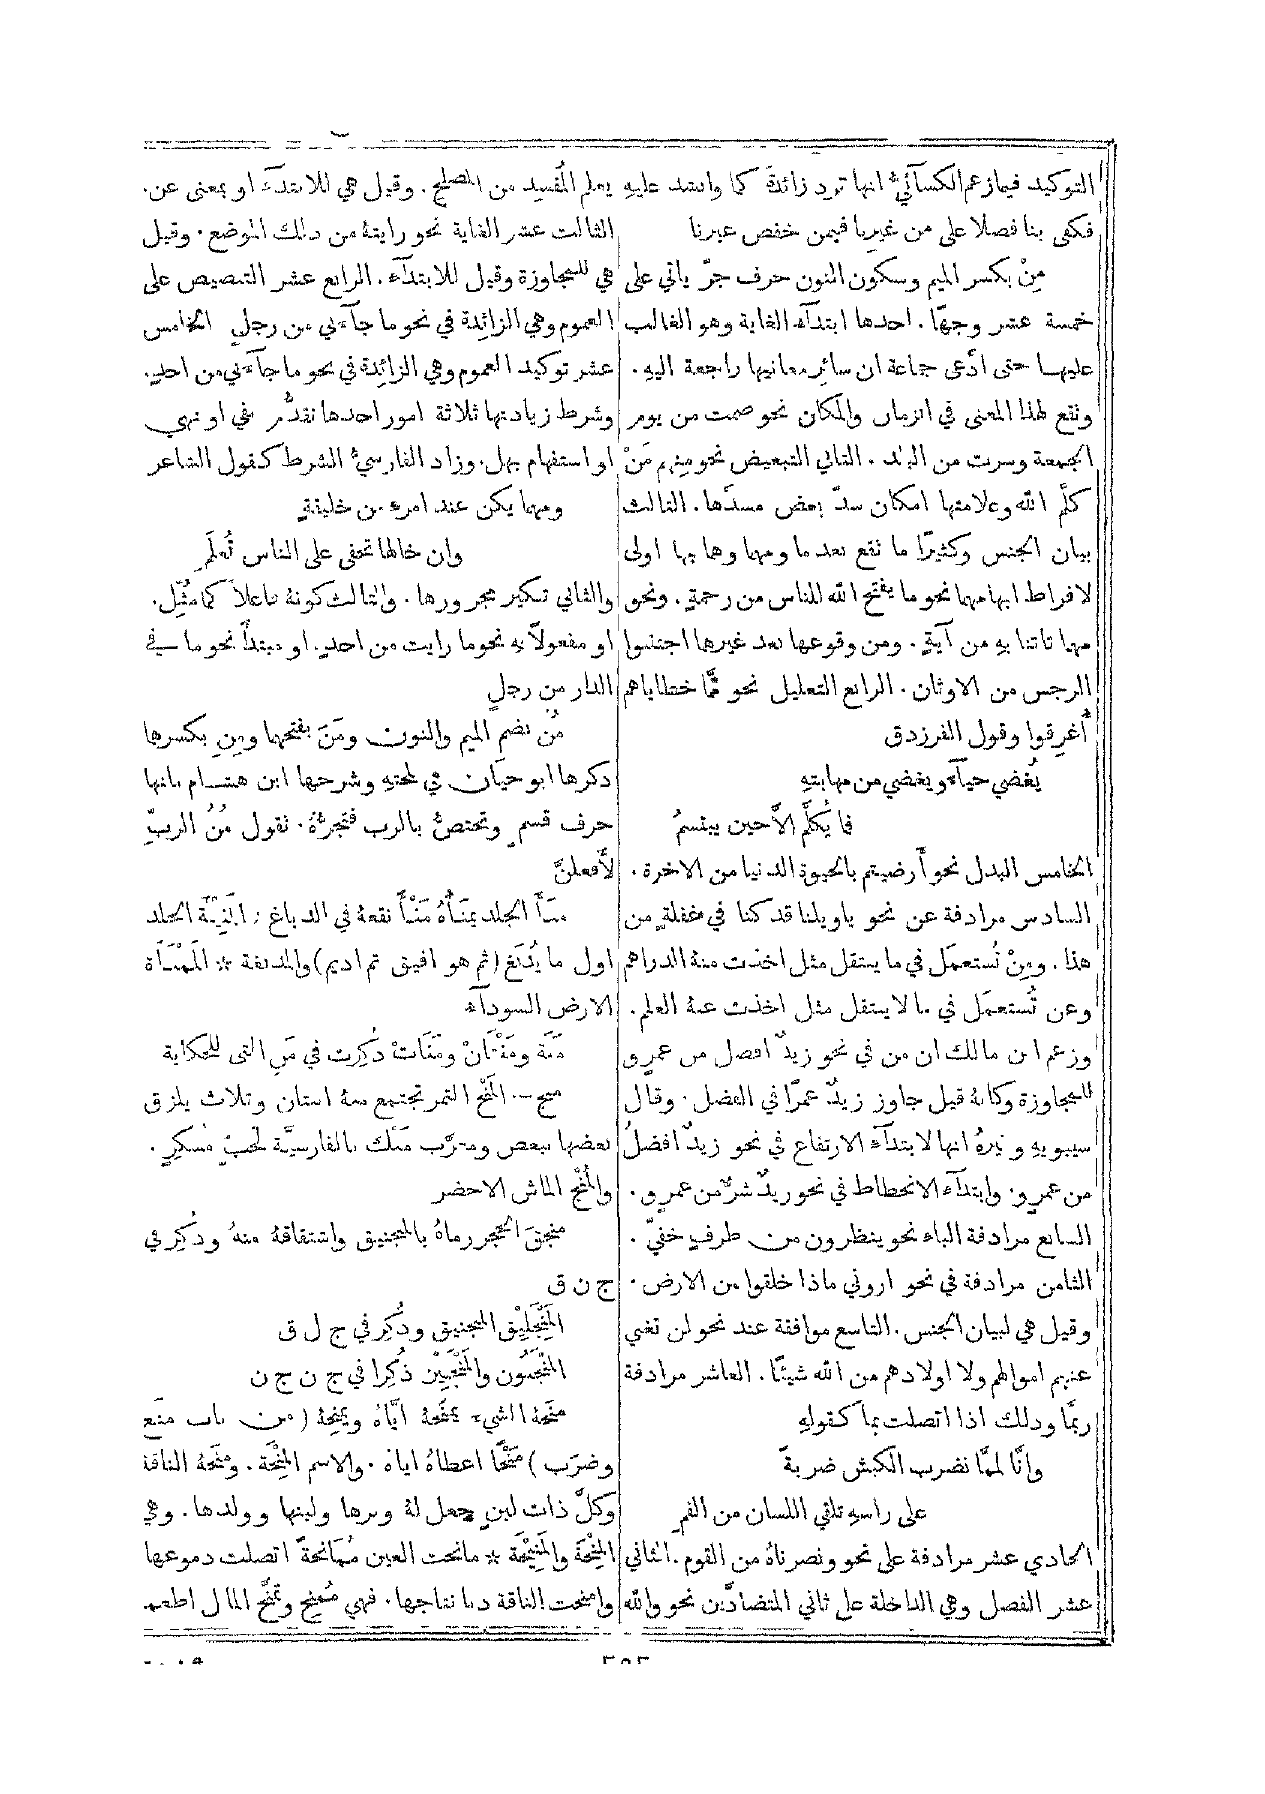 التوكيد فيما زعم الكسآئيّ انها ترد زائدة كما وانشد عليهِ
فكفى بنا فضلا على من غيرنا فيمن خفض غيرنا
مِنْ بكسر الميم وسكون النون حرف جرّ ياتي على
خمسة عشر وجهًا. احدها ابتدآء الغاية وهو الغالب
عليها حتى ادَّعى جماعة ان سائر معانيها راجعة اليهِ.
وتقع لهذا المعنى في الزمان والمكان نحو صمت من يوم
الجمعة وسرت من البلد. الثاني التبعيض نحو منهم مَنْ
كلَّم الله وعلامتها امكان سدّ بعض مسدّها. الثالث
بيان الجنس وكثيرًا ما تقع بعد ما ومهما وهما بها اولى
لافراط ابهامهما نحو ما يفتح الله للناس من رحمةٍ. ونحو
مهما تاتنا بهِ من آيةٍ. ومن وقوعها بعد غيرها اجتنبوا
الرجس من الاوثان. الرابع التعليل نحو ممَّا خطاياهم
أُغرِقوا وقول الفرزدق
يُغضي حيآءً ويغضي من مهابتهِ
فما يُكلَّم الَّا حين يبتسمُ
الخامس البدل نحو أَرضيتم بالحيوة الدنيا من الاخرة.
السادس مرادفة عن نحو ياويلنا قد كنا في غفلةٍ من
هذا. ومِنْ تُستعمَل في ما ينتقل مثل اخذت منهُ الدراهم
وعن تُستعمَل في ما لا ينتقل مثل اخذت عنهُ العلم.
وزعم ابن مالك ان من في نحو زيدٌ افضل من عمرٍو
للمجاوزة وكانهُ قيل جاوز زيدٌ عمرًا في الفضل. وقال
سيبويهِ وغيرهُ انها لابتدآء الارتفاع في نحو زيدٌ افضلُ
من عمرٍو. وابتدآء الانحطاط في نحو زيدٌ شرٌّ من عمرٍو.
السابع مرادفة الباء نحو ينظرون من طرفٍ خفيّ.
الثامن مرادفة في نحو اروني ماذا خلقوا من الارض.
وقيل هي لبيان الجنس. التاسع موافقة عند نحو لن تغني
عنهم اموالهم ولا اولادهم من الله شيئًا. العاشر مرادفة
ربَّما وذلك اذا اتصلت بما كقولهِ
وانَّا لممَّا نضرب الكبش ضربةً
على راسهِ تلقي اللسان من الفمِ
الحادي عشر مرادفة على نحو ونصرناهُ من القوم. الثاني
عشر الفصل وهي الداخلة على ثاني المتضادَّين نحو والله
يعلم المُفسِد من المصلح. وقيل هي للابتدآء او بمعنى عن.
الثالث عشر الغاية نحو رايتهُ من ذلك الموضع. وقيل
هي للمجاوزة وقيل للابتدآء. الرابع عشر التنصيص على
العموم وهي الزائدة في نحو ما جآءني من رجلٍ الخامس
عشر توكيد العموم وهي الزائدة في نحو ما جآءني من احدٍ.
وشرط زيادتها ثلاثة امور احدها تقدُّم نفي او نهي
او استفهام بهل. وزاد الفارسيُّ الشرط كقول الشاعر
ومهما يكن عند امرءٍ من خليقةٍ
وان خالها تخفى على الناس تُعلَمِ
والثاني تنكير مجرورها. والثالث كونهُ فاعلًا كما مُثِّل.
او مفعولًا بهِ نحو ما رايت من احدٍ. او مبتدأً نحو ما في
الدار من رجلٍ
مُنُ بضم الميم والنون ومَنَ بفتحها ومِنِ بكسرها
ذكرها ابو حيَّان في لمحتهِ وشرحها ابن هشام بانها
حرف قسم وتختصُّ بالرب فتجرُّهُ. تقول مُنُ الربِّ
لَأَفعلنَّ
مَنَأَ الجلد يمنَأُهُ مَنْأً نقعهُ في الدباغ. المَنِيئَة الجلد
اول ما يُدبَغ (ثم هو افيق ثم اديم) والمدبغة * المَمْنَأَة
الارض السودآء
مَنَهْ ومَنَانْ ومَنَاتْ ذُكِرت في مَنِ التي للحكاية
منج—المَنْج التمر تجتمع منهُ اثنتان وثلاث يلزق
بعضها ببعض ومعرَّب منك بالفارسيَّة لحبٍّ مُسكِرٍ.
والمُنْج الماش الاخضر
منجقَ الحجر رماهُ بالمنجنيق واشتقاقهُ منهُ وذُكِر في
ج ن ق
المَنْجَلِيْق المنجنيق وذُكِر في ج ل ق
المَنْجَنُون والمَنْجَنِيْن ذُكِرا في ج ن ج ن
منحهُ الشيءَ يمنَحهُ ايَّاهُ ويمنِحهُ (من باب منَع
وضرَب) مَنْحًا اعطاهُ اياهُ. والاسم المِنْحَة. ومنَحهُ الناقة
وكلّ ذات لبنٍ جعل لهُ وبرها ولبنها وولدها. وهي
المِنْحَة والمَنِيْحَة * مانحت العين مُمَانَحةً اتصلت دموعها
وامنحت الناقة دنا نتاجها. فهي مُمنِح وتمنَّح المال اطعمهُ